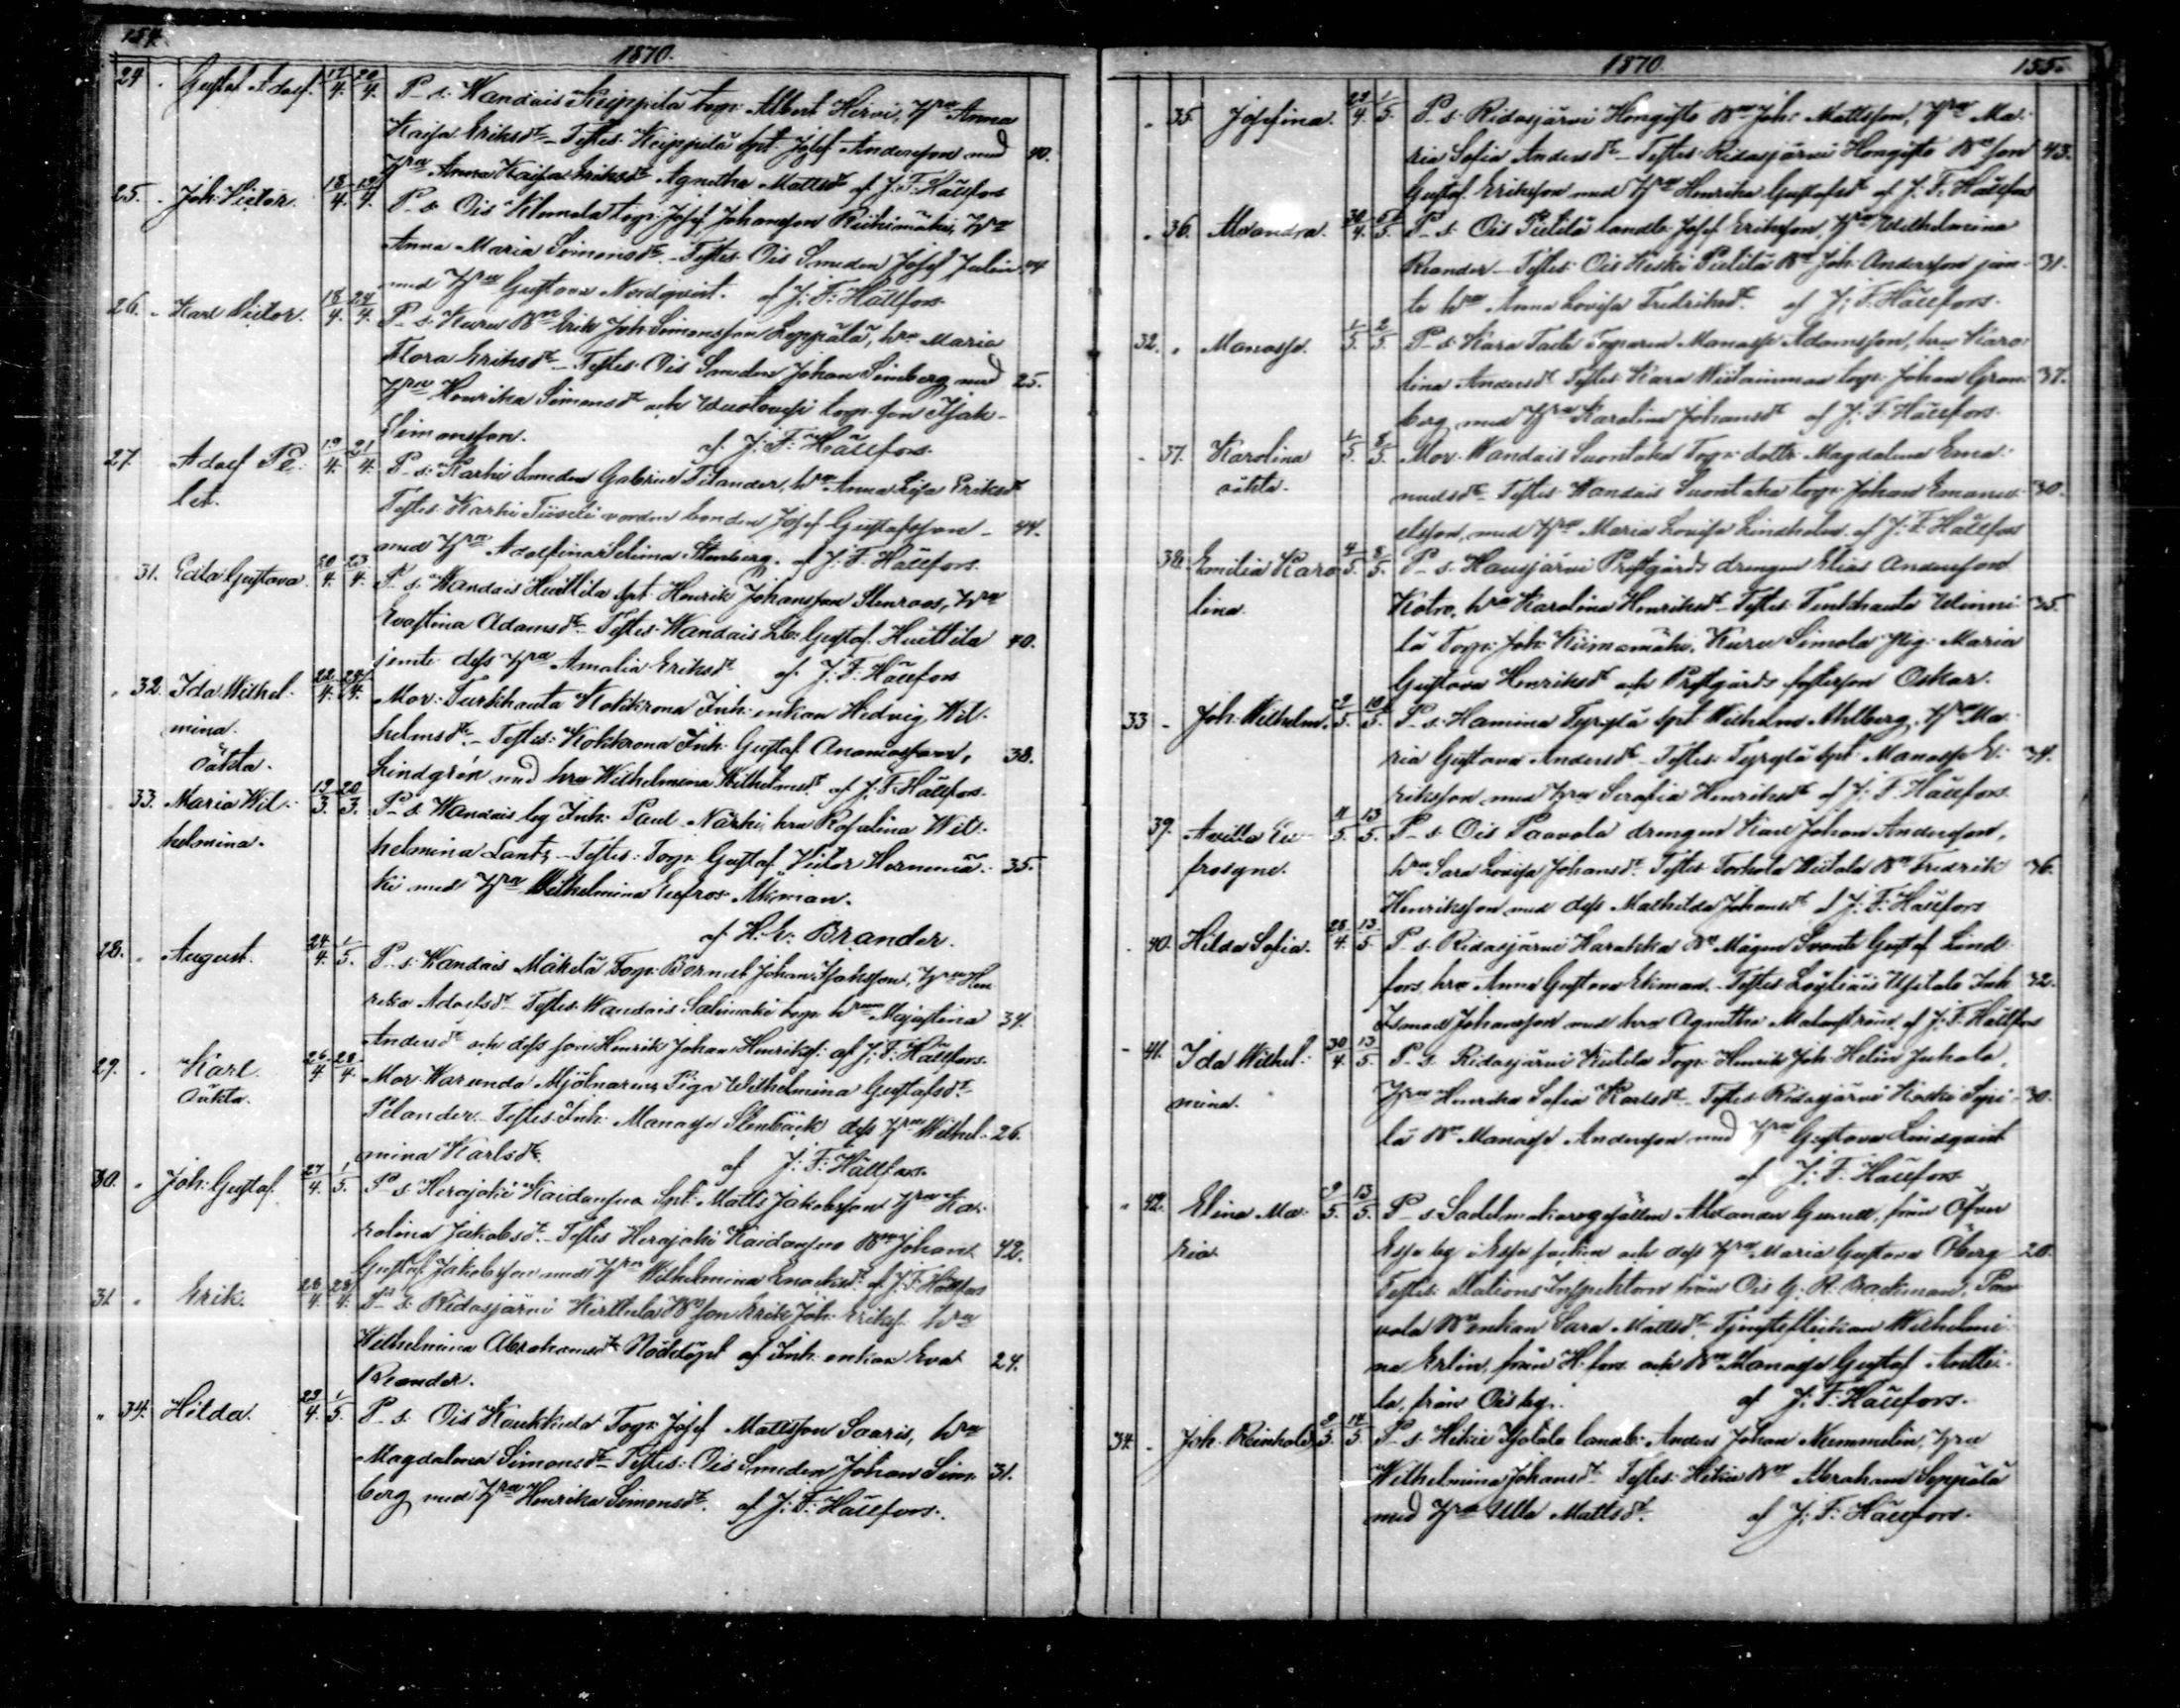 154.
1870.
24 Gustaf Adolf. 17/4. 20/4. P. s. Wandais Keippilä torp. Albert Hirvi, Hru Anna
Kaisa Eriksdr - Testes: Keippilä spt. Josef Andersson med 40.
Hru Anna Kaisa Eriksdr Agnetha Mattsdr af J. F. Hällfors
25. Joh. Victor. 18/4. P. s. Ois Kilomola torp. Josef Johansson Riihimäki, Hru
Anna Maria Simonsdr. - Testes: Ois Smeden Josef Julin 44
med Hru Gustava Nordqvist. af J. F. Hällfors.
26. Karl Victor. 18/4. 24/4. P. s. Kuru Bn Erik Joh. Simonsson Leppälä, hru Maria
Flora Eriksdr - Testes: Ois Smeden Johan Simberg med 25.
Hru Henrika Simonsdr och torp. son Isak
Simonsson. af J. F. Hällfors.
27. Adolf Fe- 19/4. 21/4. P. s. Karhi smeden Gabriel Felander, hru Anna Lisa Eriksdr
let. Testes: Karhi bonden Josef Gustafsson - 44.
med Hru Adolfina Selima Stenberg. af J. F. Hällfors.
31. Edla Gustava. 20/4. 23/4. P. s. Wandais Huittila spt. Henrik Johansson Stenroos, Hru
Evastina Adamsdr. Testes: Wandais Gustaf Huittila 40.
jemte dess Hru Amalia Eriksdr af J. F. Hällfors
32. Ida Wilhel- 22/4. 24/4. Mor: Turkhauta Kokkrona Inh. enkan Hedvig Wil-
mina. helmsdr. - Testes: Kokkrona Inh. Gustaf Ananiasson, 38.
oäkta. Lindgrén med hru Wilhelmina Wilhelmsdr af J. F. Hällfors.
33. Maria Wil- 19/3. 20/3. P. s. Wandais by Inh. Paul Närhi, hru Rosalina Wil-
helmina. helmina Lantz - Testes: Torp. Gustaf Victor Hernemä- 35.
ki med Hru Wilhelmina Eufros. Åkman.
af H. Hr. Brander.
28. August. 24/4. 1/5. P. s. Wandais Mäkelä Torp. Johan Isaksson, Hru Hen-
rika Adolfsdr Testes: Wandais Salimäki torp. Majastina 34.
Andersdr och dess son Henrik Johan Henrikss: af J. F. Hällfors.
29. Karl. 26/4. 28/4. Mor. Warunda Mjölnarens Piga Wilhelmina Gustafsdr
Oäkta. Felander. Testes: Inh. Manasse Stenbäck dess Hru Wilhel- 26.
mina Karlsdr. af J. F. Hällfors.
30. Joh. Gustaf. 27/4. 1/5. P. s. Herajoki Kaidanpää Spt. Matts Jakobsson Hru Ka-
rolina Jakobsdr. - Testes Herajoki Kaidanpää Bn Johan 42.
Gustaf Jakobsson med Hru Wilhelmina Enocksdr af J. F. Hällfors
31. Erik. 28/4. 28/4. P. s. Ridasjärvi Kerttula Bn son Erik Joh. Erikss. hru
Wilhelmina Abrahamsdr Nöddöpt af Inh. enkan Eva 24.
Reander.
34. Hilda. 29/4. 1/5. P. s. Ois Kaukkula Torp. Josef Mattsson Saaris, hru
Magdalena Simonsdr - Testes: Ois Smeden Johan Sim- 31.
berg med Hru Henrika Simonsdr. af J. F. Hällfors.
1870.
155.
35. Josefina. 29/4. 1/5. P. s. Ridasjärvi Hongisto Bn Joh. Mattsson, Hru Ma-
ria Sofia Andersdr - Testes: Ridasjärvi Hongisto Bn son 43.
Gustaf Eriksson med Hru Henrika Gustafsdr af J. F. Hällfors
36. Alexandra. 30/4. P. s. Ois Pietilä landb. Josef Eriksson, Hru Wilhelmina
Reander - Testes: Ois Keski Pietilä Bn Joh. Andersson jem- 31.
te hru Anna Lovisa Fredriksdr. af J. F. Hällfors.
32. Manasse. 1/5. 2/5. P. s. Kara Torparen Manasse Adamsson, hru Karo-
lina Andersdr Testes: Kara torp. Johan Gran- 37.
berg med Hru Karolina Johansdr af J. F. Hällfors.
37. Karolina 1/5. 8/5. Mor. Wandais Suontaka Torp. dottr. Magdalena Ema-
oäkta. nuelsdr - Testes: Wandais Suontaka torp. Johan Emanu- 30.
elsson, med Hru Maria Lovisa Lindholm af J. F. Hällfors
38. Emilia Karo- 4/5. 8/5. P. s. Hausjärvi Prestgårds drengen Elias Andersson
lina. Koivo, hru Karolina Henriksdr - Testes: Turkhauta 35.
lä Torp. Joh. Kiimamäki, Kuru Simola Pig. Maria
Gustava Henriksdr och Prestgårds fosterson Oskar.
33. Joh. Wilhelm. 9/5. 10/5. P. s. Hamina Tyrylä spt. Wilhelm Ahlberg, Hru Ma-
ria Gustava Andersdr - Testes: Tyrylä spt. Manasse E- 34.
riksson med Hru Serafia Henriksdr af J. F. Hällfors.
39. Avilla Eu- 11/5. 13/5. P. s. Ois Paavola drengen Karl Johan Andersson,
frosyne. hru Sara Lovisa Johansdr. Testes Torhola Bn Fredrik 36.
Henriksson med dess Mathilda Johansdr af J. F. Hällfors
40. Hilda Sofia. 28/4. 13/5. P. s. Ridasjärvi Karahka Bn Mågen Svante Gustaf Lind-
fors, hru Anna Gustava Ekman. - Testes Löyliäis Inh. 32.
Johansson med hru Agnetha Malmström af J. F. Hällfors
41. Ida Wilhel- 30/4. 13/5. P. s. Ridasjärvi Torp. Henrik Joh. Helin Juhola,
mina. Hru Henrika Sofia Karlsdr - Testes Ridasjärvi Koski 30.
lä Bn Manasse Andersson med Hru Gustava Lindqvist
af J. F. Hällfors
42. Elina Ma- 9/5. 13/5. P. s. Sadelmakaregesällen Alexander från Öfver
ria. Espo by i Espo socken och dess Hru Maria Gustava Öberg 20.
Testes: Stations Inspektorn från Ois G. R. Backman, Paa-
vola Bn enkan Sara Mattsdr. Wilhelmi-
na Erlin, från H:fors och Bn Manasse Gustaf Anttii-
la, från Ois by. af J. F. Hällfors.
34. Joh. Reinhold. 9/5. 14/5. P. s. Hikie Isotalo landb. Anders Johan Nummelin, Hru
Wilhelmina Johansdr Testes: Hikie Bn Abraham Seppälä
med Hru Ulla Mattsdr. af J. F. Hällfors.